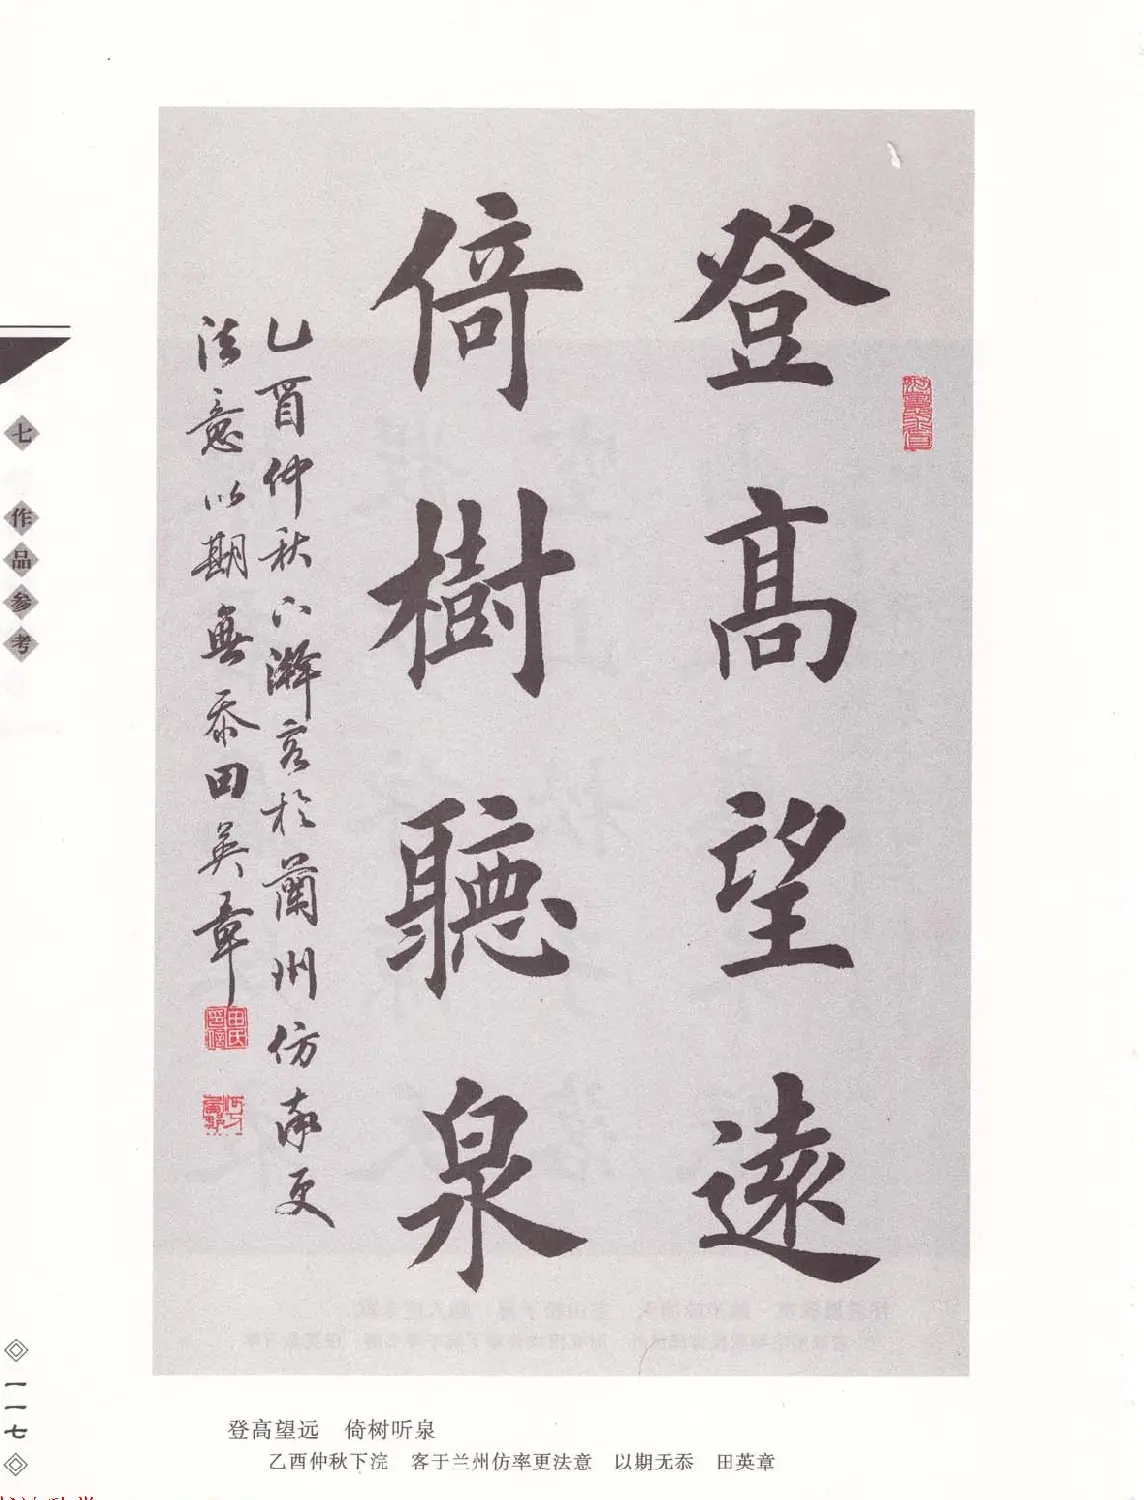 登髙望遠
倚樹聽泉
乙酉仲秋下澣客於蘭州仿率更
法意以期無忝田英章
田氏
七 作品参考
一一七
登高望远 倚树听泉
乙酉仲秋下浣 客于兰州仿率更法意 以期无忝 田英章